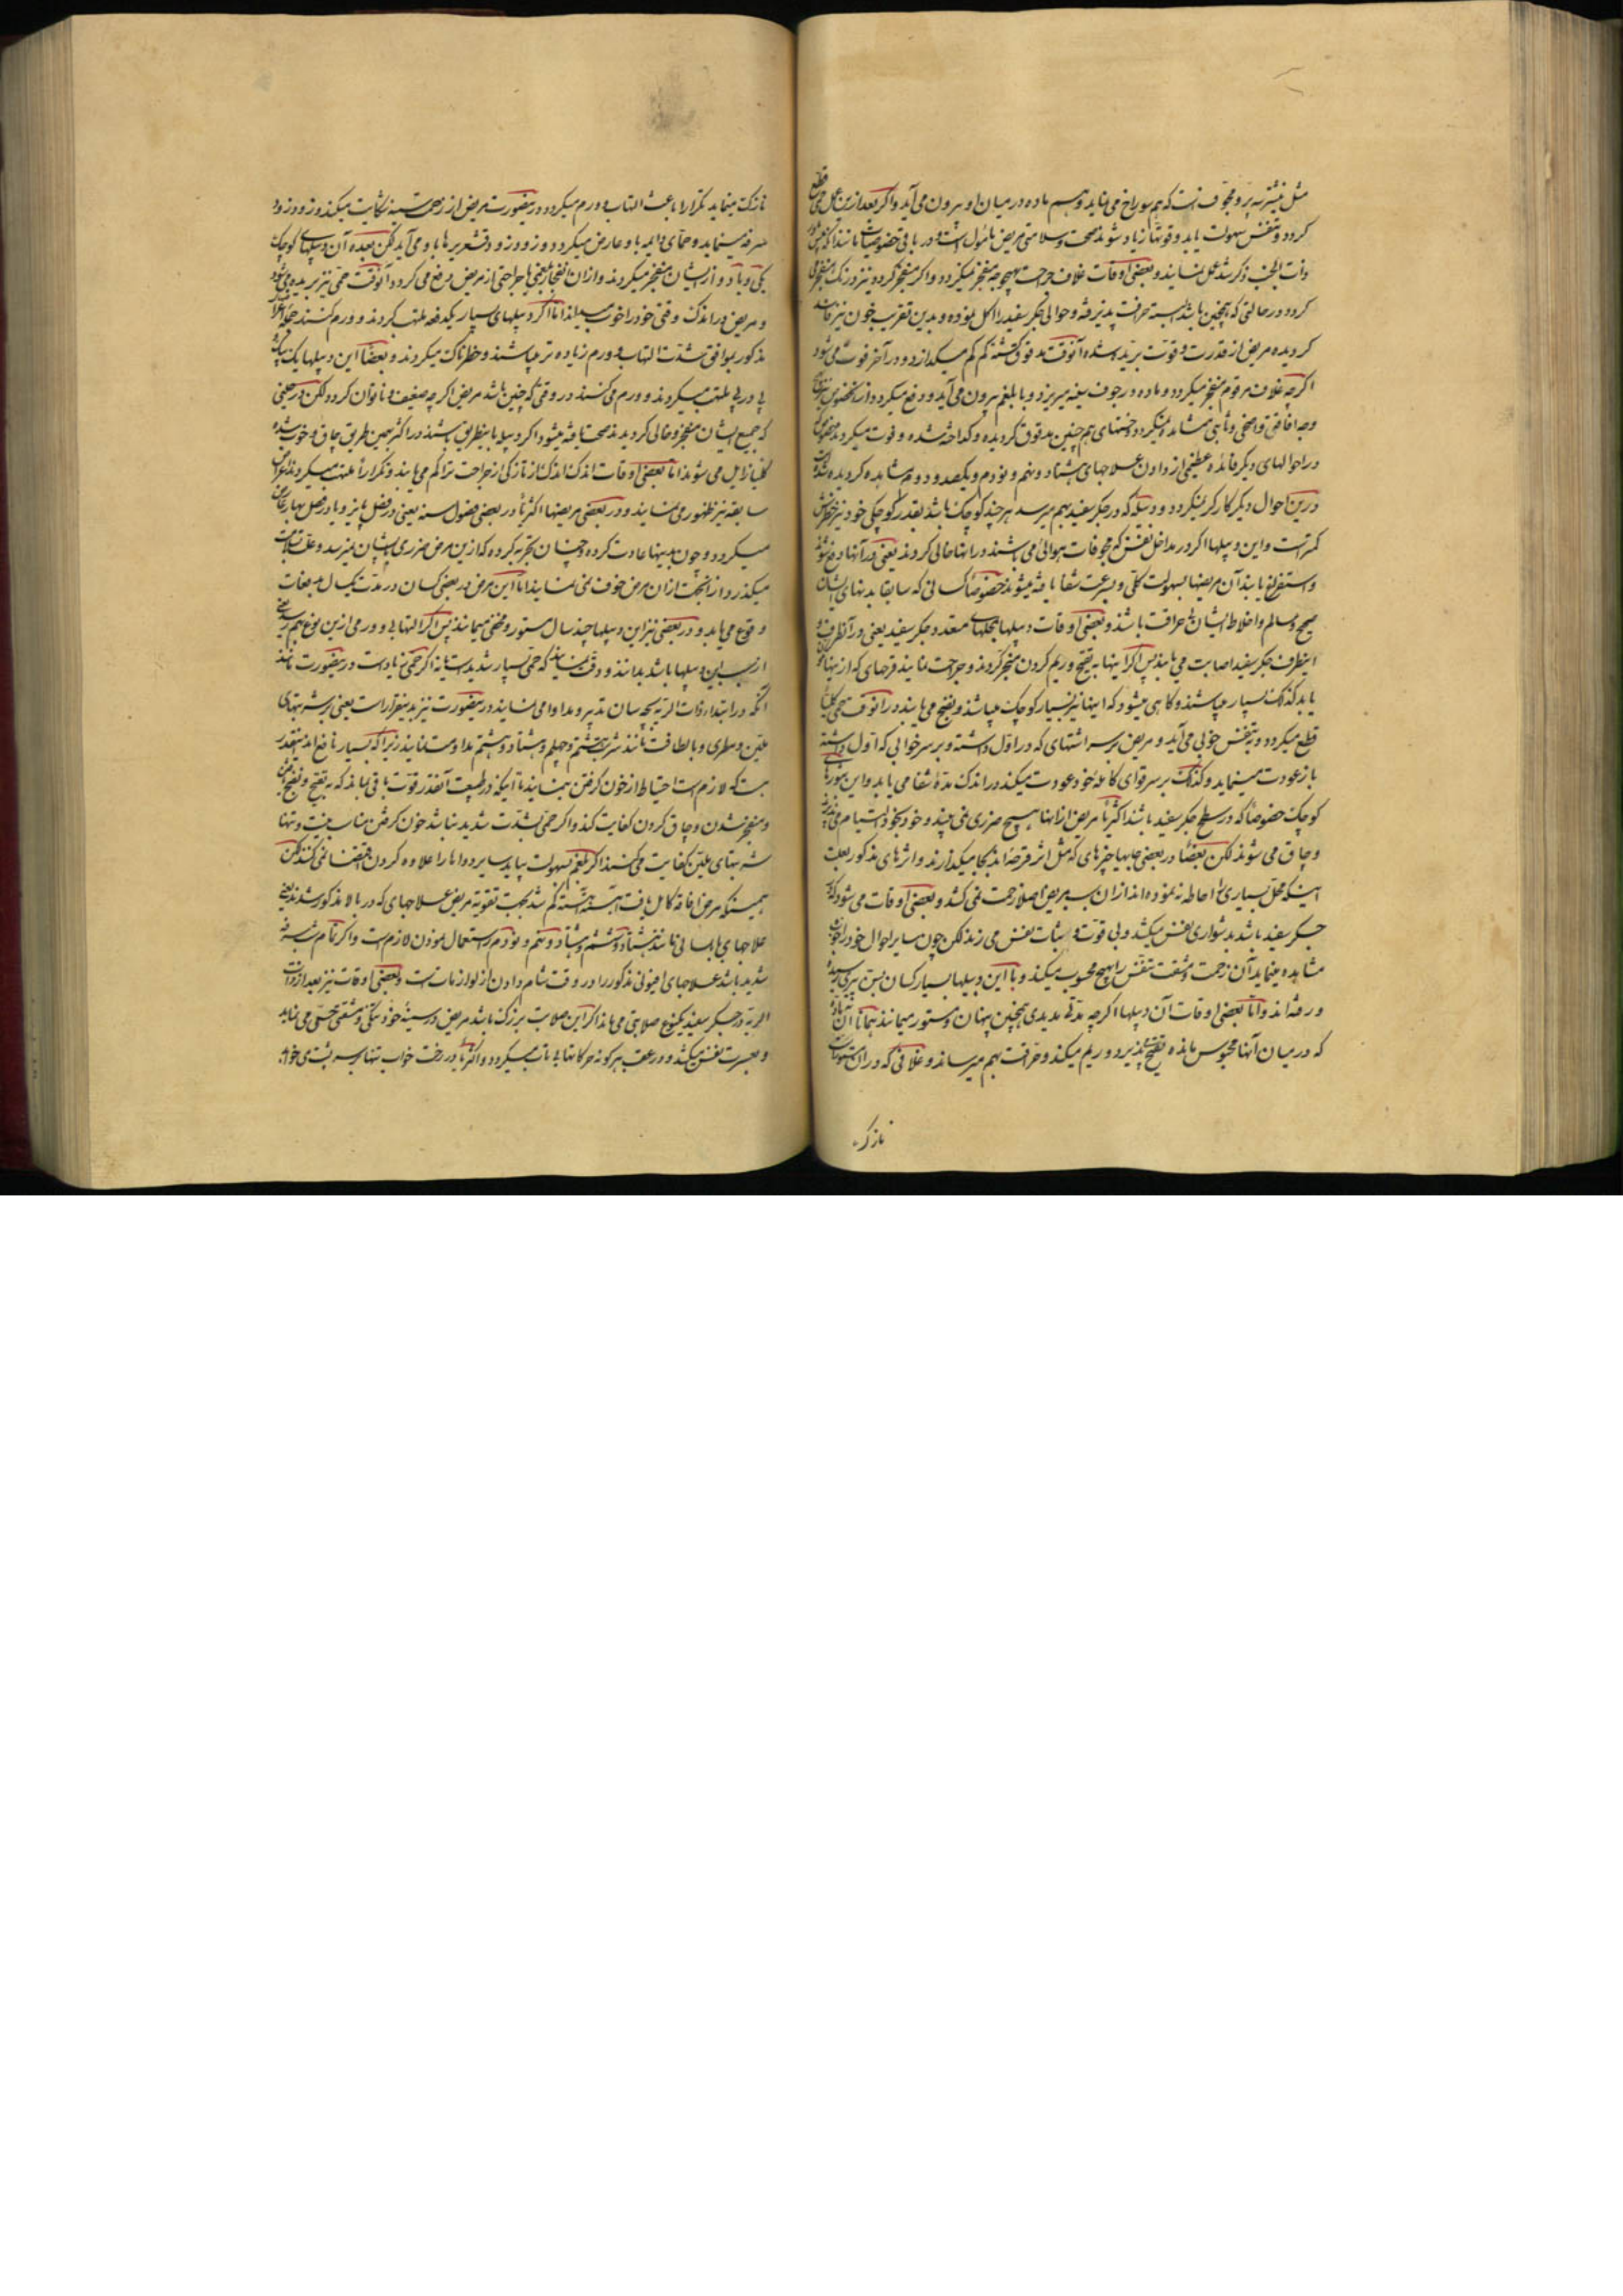 مثل نیشتر پر و مجوف است که هم سوراخ می نماید و هم ماده در میان او بیرون می آید و اکر بعد ازین عمل حمی قطع
کردد و تنفس سهولت یابد و قوتها زیاد شوند صحت و سلامتی مریض مامول است و در باقی خصوصیات مانند آنکه
ذات الجنب ذکر شد عمل نمایند و بعضی اوقات غلاف جراحت بهیچ وجه منفجر نمیکردد و اکر منفجر کردد نیز
کردد در حالتی که همچنین باشد البته حرافت پذیرفته و حوالی جکر سفید را اکل نموده و بدین تقریب خون نیز
کردیده مریض از قدرت و قوت برید شده آنوقت مدقوق کشته کم کم میکدازد و در آخر فوت می شود
اکرچه غلاف مرقوم منفجر میکردد و ماده در جوف سینه میریزد و با بلغم بیرون می آید و دفع میکردد
وجه افاقتی واضحی و ثابتی مشاهد نمیکردد و خستهای هم چنین مدقوق کردیده و کداخته شده و فوت میکردند
در احوالهای دیکر فائده عظیمی از دادن علاجهای هشتاد و نهم و نودم و یکصد و دوم مشاهده کردیده
درین احوال دیکر کارکر نمیکردد و دبیله که در جکر سفید بهم میرسد هر چند کوچک باشد بقدر کوچکی خود نیز خطرش
کمتر است و این دبیلها اکر در مداخل تنفس که مجوفات هوائی می باشند در انها خالی کردند یعنی در آنها دفع شود
و استفراغ یابند آن مریضها بسهولت کلی و بسرعت شفا یافته میشوند خصوصا کسانی که سابقا بدنهای ایشان
صحیح و سالم و اخلاط ایشان بی حرافت باشند و بعضی اوقات دبیلها بمحلهای متعدد جکر سفید یعنی در آنطرف و
اینطرف جکر سفید اصابت می یابند پس اکر اینها بتقیح و ریم کردن منجر کردند و جراحت نمایند قرحهای که از اینها
یابد کذلک بسیار میباشند و کاهی میشود که اینها نیز بسیار کوچک میباشند و بنضج می یابند در آنوقت حمی کلیا
قطع میکردد و تنفس خوبی می آید و مریض بر سر اشتهای که در اول داشته و بر سر خوابی که اول داشته
باز عودت مینماید و کذلک بر سر قوای کامله خود عودت میکند در اندک مدة شفا می یابد و این
کوچک خصوصا که در سطح جکر سفید باشند اکثریا مریض از اینها هیچ ضرری نمی بیند و خود بخود التیام می پذیرند
و چاق می شوند لکن بعضا در بعضی جایها چیزهای که مثل اثر قرحه اند بجا میکذارند و اثرهای مذکور بعلت
اینکه محل بسیاری را احاطه نموده اند از ان سبب مریض اصلا زحمت نمی کشد و بعضی اوقات می شود که
جکر سفید باشد بدشواری نفس میکشد و بی قوت و ثبات نفس می زند لکن چون سایر احوال خود را خوب
مشاهده مینماید آن زحمت و مشقت تنفس را هیچ محسوب نمیکند و با این دبیلها بسیار کسان بسن پیری رسیده
و رفته اند و اما بعضی اوقات آن دبیلها اکرچه مدتی مدیدی همچنین پنهان و مستور میمانند همانا آن ماده
که در میان آنها محبوس مانده تقیح پذیرد و ریم میکند و حرافت بهم میرساند و غلافی که در ان مستور است
نازک
نازک مینماید تکرارا باعث التهاب و ورم میکردد درینصورت مریض از زحمت سینه شکایت میکند و زود زود
سرفه مینماید و حمای دایمه باو عارض میکردد و زود زود قشعریرها باو می آید لکن بعده آن دبیلهای کوچک
یکی و یا دو از ایشان منفجر میکردند و از ان انفجار بلغمی با جراحتی از مریض دفع می کردد آنوقت حمی نیز بریده می شود
و مریض در اندک وقتی خود را خوب می بیند اما اکر دبیلهای بسیار یکدفعه ملتهب کردند و ورم کنند جمله اعراض
مذکور بموافق شدت التهاب و ورم زیاده تر میباشند و خطرناک میکردند و بعضا این دبیلها یک یک
پی در پی ملتهب میکردند و ورم می کنند در وقتی که چنین باشد مریض اکرچه ضعیف و ناتوان کردد لکن در حینی
که جمیع ایشان منفجر و خالی کردیدند صحت یافته میشود اکر دبیله باینطریق باشند در اکثر بهمین طریق چاق و خوب شده
کلیا زایل می شوند اما بعضی اوقات اندک اندک از نازکی از جراحت تراکم می یابند و تکرارا ملتهب میکردند
سابقه نیز ظهور می نمایند و در بعضی مریضها اکثریا در بعضی فصول سنه یعنی در فصل پاییز و یا در فصل بهار عارض
میکردد و چون بدینها عادت کرده و چنان تجربه کرده که ازین مرض ضرری بایشان نمیرسد و علت بسلامت
میکذرد از انجهت ازان مرض خوف نمی نمایند اما این مرض در بعضی کسان در مدت یکسال بدفعات
وقوع می یابد و در بعضی نیز این دبیلها چند سال مستور و مخفی میمانند پس اکر التهابی و ورمی ازین نوع بهم رسد
از سبب این دبیلها باشد بدانند و دقت نمایند که حمی بسیار شدید است یا نه اکر حمی زیاد است درینصورت مانند
آنکه در ابتداء ذات الریه بچه سان تدبیر و مداوا می نمایند درینصورت نیز بدینقرار است یعنی بر شربتهای
ملین و مطری و بالطافت مانند شربت هشتم و چهلم و هشتاد و هشتم مداومت نمایند زیرا که بسیار نافع اند اینقدر
هست که لازم است احتیاط از خون کرفتن بنمایند تا اینکه در طبیعت آنقدر قوت باقی بماند که بتقیح و نضج
و منفجر شدن و چاق کردن کفایت کند و اکر حمی بشدت شدید نباشد خون کرفتن مناسب نیست و تنها
شربتهای ملین کفایت می کنند اکر بلغم بسهولت بیاید سایر دواها را علاوه کردن اقتضا نمی کنند لکن
همینکه مرض افاقه کامل یافت آهسته آهسته کم شد بجهت تقویه مریض علاجهای که در بالا مذکور شدند یعنی
علاجهای بلسانی مانند هشتاد و ششم و هشتاد و نهم و نودم را استعمال نمودن لازم است و اکر تمام سرفه
شدید باشد علاجهای افیونی مذکور را در وقت شام دادن از لوازمات است و بعضی اوقات نیز بعد از ذات
الریه در جکر سفید یکنوع صلابتی می ماند اکر این صلابت بزرک باشد مریض در سینه خود تنکی و مشقتی حس می نماید
و بعسرت نفس میکشد و در عقب هرکونه حرکاتها بی تاب میکردد و اکثریا در رخت خواب تنها بر سر پشت می خوابد